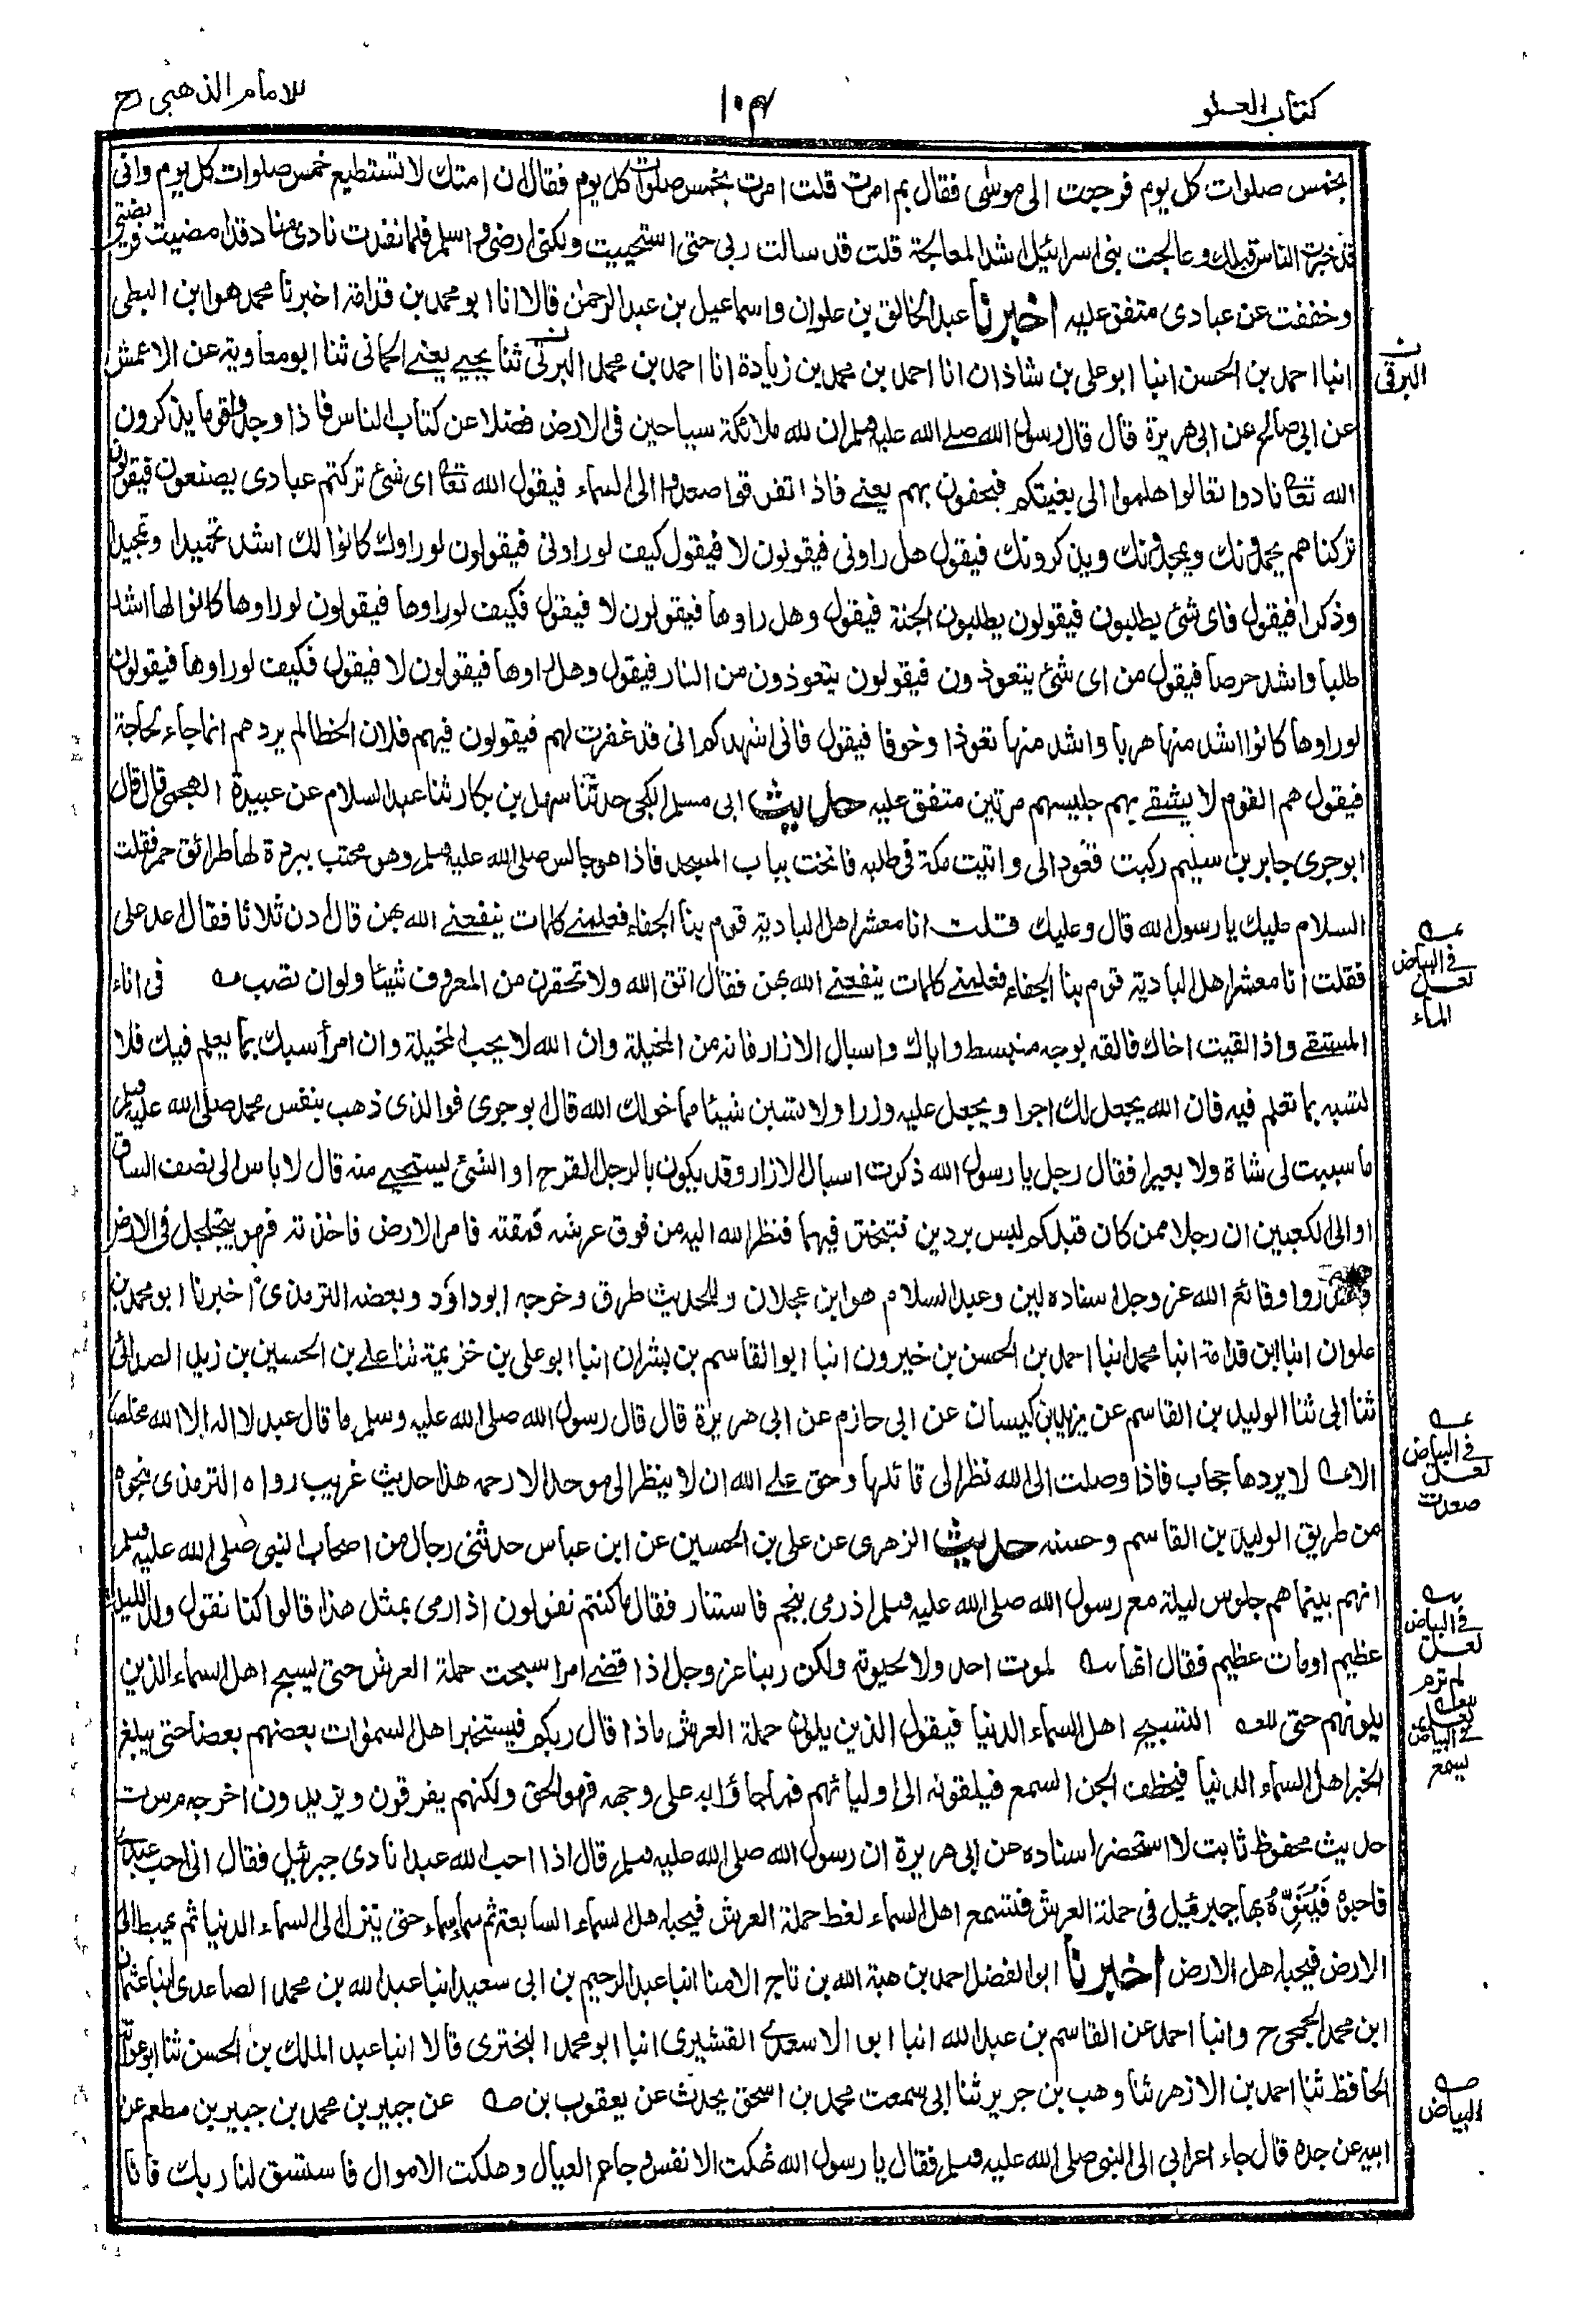 كتاب العلو
١٠٤
للامام الذهبي رح
بخمس صلوات كل يوم فرجعت الى موسى فقال بم امرت قلت امرت بخمس صلوات كل يوم فقال ان امتك لا تستطيع خمس صلوات كل يوم وانى
قد خبرت الناس قبلك وعالجت بنى اسرائيل اشد المعالجة قلت قد سالت ربى حتى استحييت ولكنى ارضى و اسلم فلما نفدت نادى مناد قد امضيت فريضتى
وخففت عن عبادى متفق عليه اخبرنا عبد الخالق بن علوان واسماعيل بن عبد الرحمن قالا انا ابو محمد بن قدامة اخبرنا محمد هو ابن البطى
انبا احمد بن الحسن انبا ابو على بن شاذان انا احمد بن محمد بن زيادة انا احمد بن محمد البرتى ثنا يحيى يعنى الحمانى ثنا ابو معاوية عن الاعمش
البرقى
عن ابى صالح عن ابى هريرة قال قال رسول الله صلى الله عليه وسلم ان لله ملائكة سياحين فى الارض فضلا عن كتاب الناس فاذا وجدوا قوما يذكرون
الله تعالى نادوا تعالوا هلموا الى بغيتكم فيحفون بهم يعنى فاذا تفرقوا صعدوا الى السماء فيقول الله تعالى اى شئ تركتم عبادى يصنعون فيقولون
تركناهم يحمدونك ويمجدونك ويذكرونك فيقول هل راونى فيقولون لا فيقول كيف لو راونى فيقولون لو راوك كانوا لك اشد تحميدا وتمجيدا
وذكرا فيقول فاى شئ يطلبون فيقولون يطلبون الجنة فيقول وهل راوها فيقولون لا فيقول فكيف لو راوها فيقولون لو راوها كانوا لها اشد
طلبا واشد حرصا فيقول من اى شئ يتعوذون فيقولون يتعوذون من النار فيقول وهل راوها فيقولون لا فيقول فكيف لو راوها فيقولون
لو راوها كانوا اشد منها هربا واشد منها تعوذا وخوفا فيقول فانى اشهدكم انى قد غفرت لهم فيقولون فيهم فلان الخطا لم يردهم انما جاء لحاجة
فيقول هم القوم لا يشقى بهم جليسهم مرتين متفق عليه حديث ابى مسلم الكجى حدثنا سهل بن بكار ثنا عبد السلام عن عبيدة الهجمى قال قال
ابو جرى جابر بن سليم ركبت قعود الى واتيت مكة فى طلبه فانخت بباب المسجد فاذا هو جالس صلى الله عليه وسلم وهو محتب ببردة لها طرائق حمر فقلت
السلام عليك يا رسول الله قال وعليك قلت انا معشر اهل البادية قوم بنا الجفاء فعلمنى كلمات ينفعنى الله بهن قال ادن ثلاثا فقال اعد على
فقلت انا معشر اهل البادية قوم بنا الجفاء فعلمنى كلمات ينفعنى الله بهن فقال اتق الله ولا تحقرن من المعروف شيئا ولو ان تصب فى اناء
فى البياض لعل الماء
المستقى واذا لقيت اخاك فالقه بوجه منبسط واياك واسبال الازار فانه من المخيلة وان الله لا يحب المخيلة وان امرأ سبك بما يعلم فيك فلا
تسبه بما تعلم فيه فان الله يجعل لك اجرا ويجعل عليه وزرا ولا تسبن شيئا مما خولك الله قال ابو جرى فوالذى ذهب بنفس محمد صلى الله عليه وسلم
ما سببت لى شاة ولا بعيرا فقال رجل يا رسول الله ذكرت اسبال الازار وقد يكون بالرجل القرح او الشئ ليستحيى منه قال لا باس الى نصف الساق
او الى الكعبين ان رجلا ممن كان قبلكم لبس بردين فتبختر فيهما فنظر الله اليه من فوق عرشه فمقته فامر الارض فاخذته فهو يتجلجل فى الارض
روا وقائع الله عز وجل اسناده لين وعبد السلام هو ابن عجلان وللحديث طرق وخرجه ابو داؤد وبعضه الترمذى اخبرنا ابو محمد بن
علوان انبا ابن قدامة انبا محمد انبا احمد بن الحسن بن خيرون انبا ابو القاسم بن بشران انبا ابو على بن خزيمة ثنا على بن الحسين بن زيد الصدائى
ثنا ابى ثنا الوليد بن القاسم عن يزيد بن كيسان عن ابى حازم عن ابى هريرة قال قال رسول الله صلى الله عليه وسلم ما قال عبد لا اله الا الله مخلصا
الا لا يردها حجاب فاذا وصلت الى الله نظر الى قائلها وحق على الله ان لا ينظر الى موحد الا رحمه هذا حديث غريب رواه الترمذى بنحوه
فى البياض لعل صعدت
من طريق الوليد بن القاسم وحسنه حديث الزهرى عن على بن الحسين عن ابن عباس حدثنى رجال من اصحاب النبى صلى الله عليه وسلم
انهم بينما هم جلوس ليلة مع رسول الله صلى الله عليه وسلم اذ رمى بنجم فاستنار فقال ما كنتم تقولون اذا رمى بمثل هذا قالوا كنا نقول ولد الليلة
عظيم او مات عظيم فقال انها لموت احد ولا لحيوته ولكن ربنا عز وجل اذا قضى امرا سبحت حملة العرش حتى يسبح اهل السماء الذين
فى البياض لعل لم ترم
يلونهم حتى التسبيح اهل السماء الدنيا فيقول الذين يلون حملة العرش ماذا قال ربكم فيستخبر اهل السموات بعضهم بعضا حتى يبلغ
فى البياض يسمع
الخبر اهل السماء الدنيا فيخطف الجن السمع فيلقونه الى اوليائهم فما جاؤا به على وجهه فهو الحق ولكنهم يفرقون ويزيدون اخرجه م س ت
حديث محفوظ ثابت لا استحضر اسناده عن ابى هريرة ان رسول الله صلى الله عليه وسلم قال اذا احب الله عبدا نادى جبرئيل فقال انى احب عبدى
فاحبوه فينوه بها جبرئيل فى حملة العرش فتسمع اهل السماء لغط حملة العرش فيحبه اهل السماء السابعة ثم سماء سماء حتى ينزل الى السماء الدنيا ثم يهبط الى
الارض فيحبه اهل الارض اخبرنا ابو الفضل احمد بن هبة الله بن تاج الامنا انبا عبد الرحيم بن ابى سعيد انبا عبد الله بن محمد الصاعدى انبا عثمان
ابن محمد المحمى ح وانبا احمد عن القاسم بن عبد الله انبا ابو الاسعد القشيرى انبا ابو محمد البخترى قالا انبا عبد الملك بن الحسن ثنا ابو عوانة
الحافظ ثنا احمد بن الازهر ثنا وهب بن جرير ثنا ابى سمعت محمد بن اسحق يحدث عن يعقوب بن عن جبير بن محمد بن جبير بن مطعم عن
البياض
ابيه عن جده قال جاء اعرابى الى النبى صلى الله عليه وسلم فقال يا رسول الله نهكت الانفس وجاع العيال وهلكت الاموال فاستسق لنا ربك فانا